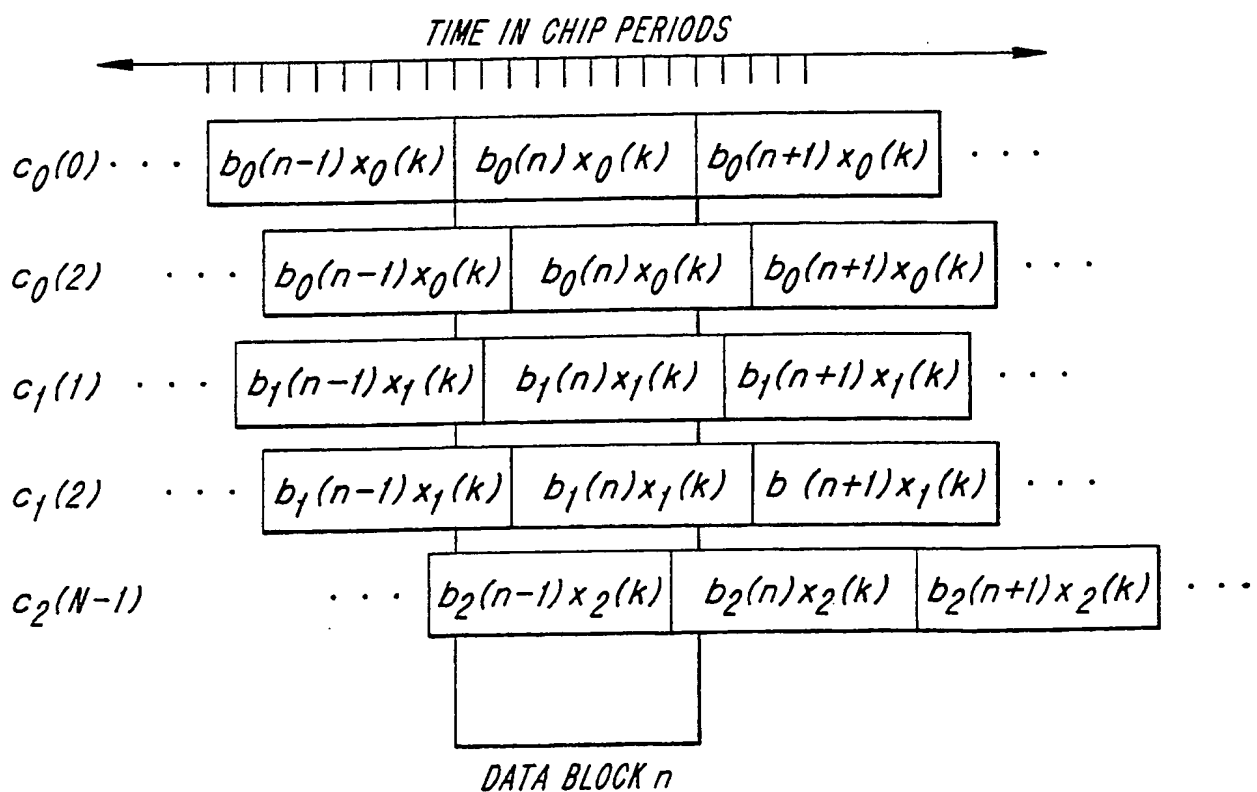 TIME IN CHIP PERIODS
c₀(0) · · · b₀(n-1)x₀(k) b₀(n)x₀(k) b₀(n+1)x₀(k) · · ·
c₀(2) · · · b₀(n-1)x₀(k) b₀(n)x₀(k) b₀(n+1)x₀(k) · · ·
c₁(1) · · · b₁(n-1)x₁(k) b₁(n)x₁(k) b₁(n+1)x₁(k) · · ·
c₁(2) · · · b₁(n-1)x₁(k) b₁(n)x₁(k) b (n+1)x₁(k) · · ·
c₂(N-1) · · · b₂(n-1)x₂(k) b₂(n)x₂(k) b₂(n+1)x₂(k) · · ·
DATA BLOCK n